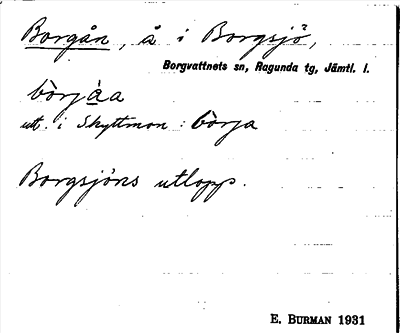 Borgån, å i Borgsjö?,
Borgvattnets sn, Ragunda tg, Jämtl. l.
bòrjåa
utt. i Skyttmon: bòrja
Borgsjöns utlopp.
E. BURMAN 1931